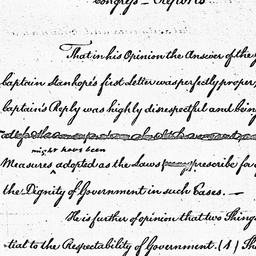 Congress — Reports
That in his Opinion the Answer of the
Captain Stanhope's first Letter was perfectly proper,
Captain's Reply was highly disrespectful and being
might have been
Measures adopted as the Laws prescribe for
the Dignity of Government in such Cases. —
He is further of opinion that two Things
tial to the Respectability of Government. (1) Th